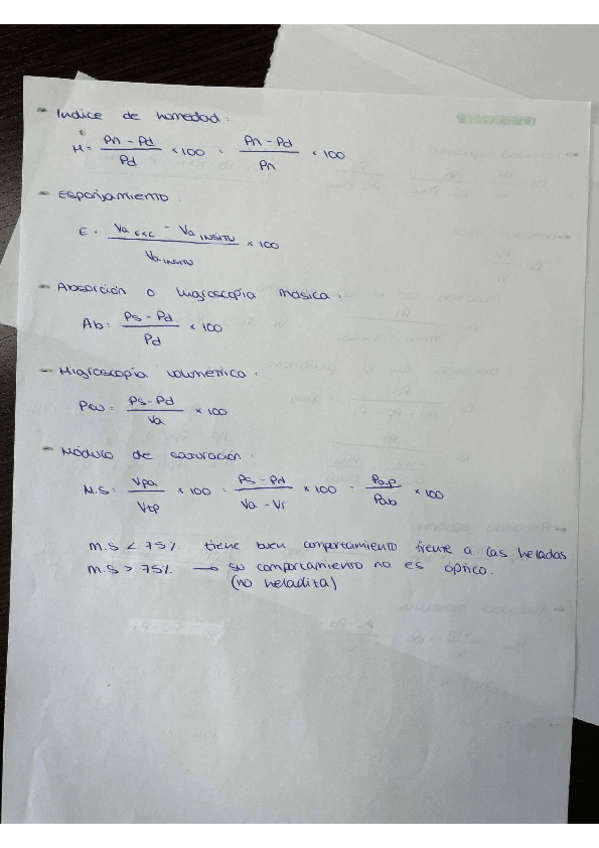 - Indice de homedad:
H = (Pn - Pd) / Pd × 100 = (Pn - Pd) / Pn × 100
- Esponjamiento
E = (Va exc - Va INSITU) / Va INSITU × 100
- Absorción o higroscopia másica.
Ab: (Ps - Pd) / Pd × 100
- Higroscopia volumétrica.
(Ps - Pd) / Va × 100
- Módulo de saturación.
M.S: Vpa / Vtp × 100 = (Ps - Pd) / (Va - Vr) × 100 = Pap / Pab × 100
M.S < 75% tiene buen comportamiento frente a las heladas
M.S > 75% → su comportamiento no es óptico.
(no heladita)